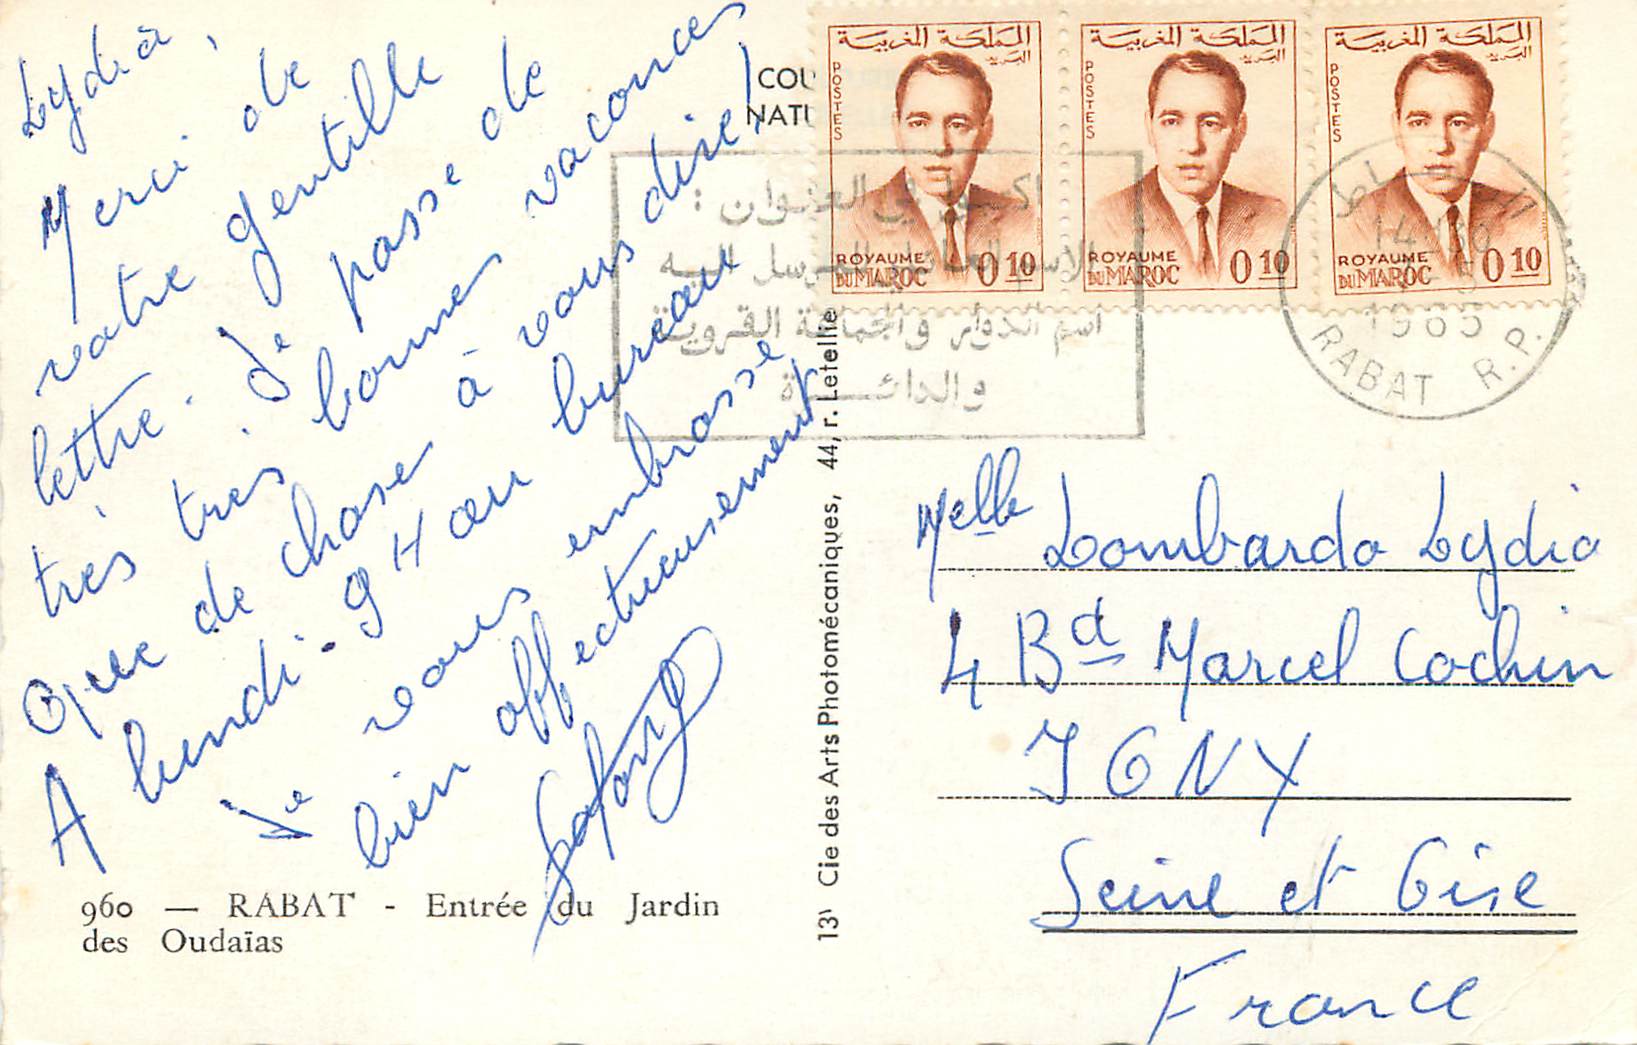 Lydia,
Merci de
votre gentille
lettre. Je passe de
très très bonnes vacances
Que de choses à vous dire!
A lundi - 9H au bureau
Je vous embrasse
bien affectueusement
960 — RABAT - Entrée du Jardin
des Oudaïas
Cie des Arts Photomécaniques, 44, r. Letellie
COU
NATU
المملكة المغربية
البريد
POSTES
ROYAUME
DU MAROC 0 10
المملكة المغربية
البريد
POSTES
ROYAUME
DU MAROC 0 10
المملكة المغربية
البريد
POSTES
ROYAUME
DU MAROC 0 10
اكتبوا في العنوان :
الاسم العائلي للمرسل اليه
اسم الدوار والجماعة القروية
والدائرة
الرباط
RABAT R.P.
Melle Lombardo Lydia
4 Bd Marcel Cachin
IGNY
Seine et Oise
France